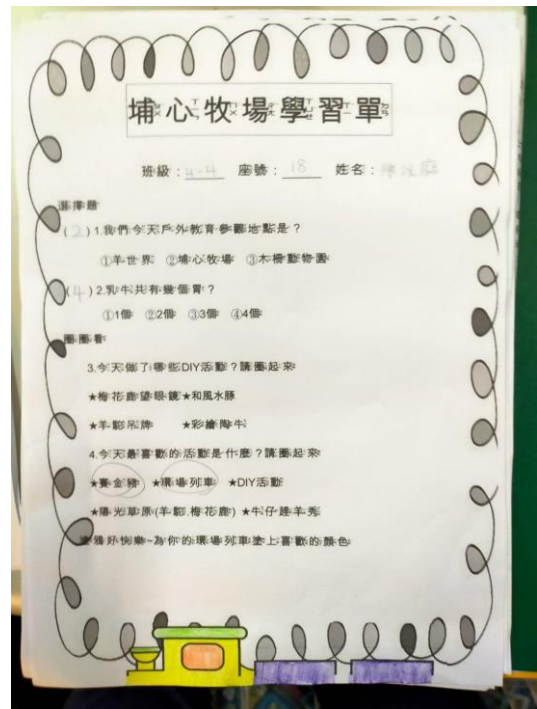 埔心牧場學習單
班級：4-4 座號：18 姓名：
選擇題
(2) 1.我們今天戶外教育參觀地點是？
①羊世界 ②埔心牧場 ③木柵動物園
(4) 2.乳牛共有幾個胃？
①1個 ②2個 ③3個 ④4個
圈圈看
3.今天做了哪些DIY活動？請圈起來
★梅花鹿望眼鏡★和風水豚
★羊駝吊牌 ★彩繪陶牛
4.今天最喜歡的活動是什麼？請圈起來
★賽金豬 ★環場列車 ★DIY活動
★陽光草原(羊駝.梅花鹿) ★牛仔趕羊秀
好快樂~為你的環場列車塗上喜歡的顏色